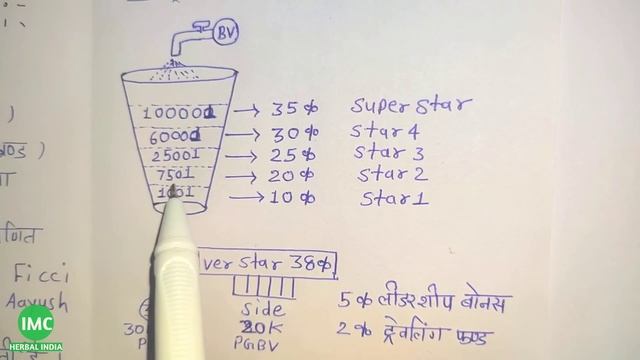 BV
100000 → 35% Super Star
60000 → 30% Star 4
25001 → 25% Star 3
7501 → 20% Star 2
1001 → 10% Star 1
ver Star 38%
Side
20K
PGBV
30
P
5% लीडरशीप बोनस
2% ट्रेवलिंग फण्ड
ण्ड )
णित
Ficci
Aayush
IMC
HERBAL INDIA